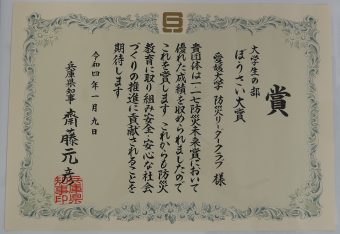 賞
大学生の部
ぼうさい大賞
愛媛大学 防災リーダークラブ 様
貴団体は一・一七防災未来賞において
優れた成績を収められましたので
これを賞します これからも防災
教育に取り組み安全・安心な社会
づくりの推進に貢献されることを
期待します
令和四年一月九日
兵庫県知事 齋藤元彦
兵庫県知事印